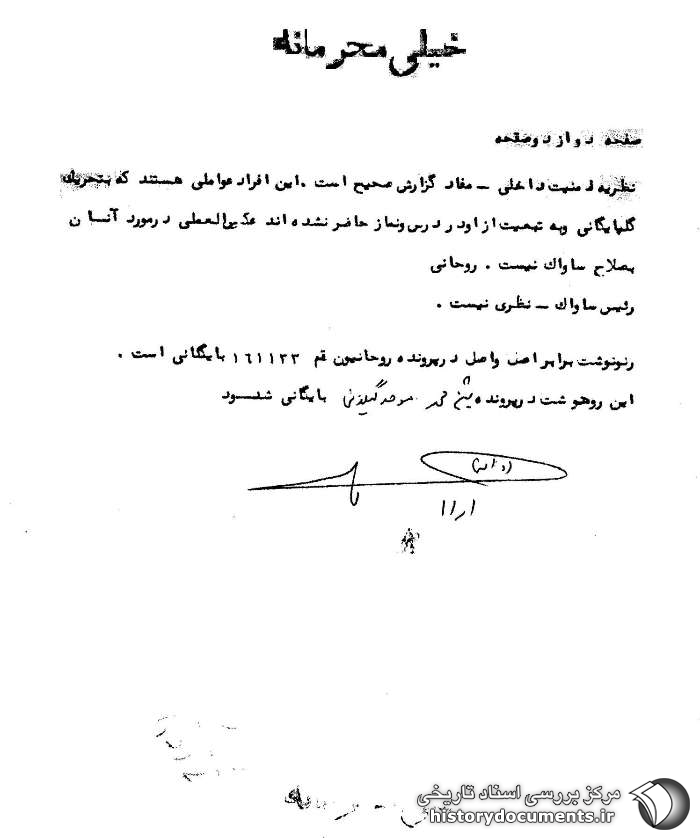 خیلی محرمانه
صفحه دو از دو صفحه
نظریه امنیت داخلی – مفاد گزارش صحیح است. این افراد عواملی هستند که بتحریک
گلپایگانی وبه تبعیت از او در درس ونماز حاضر نشده اند عکس العملی در مورد آنان
بصلاح ساواک نیست. روحانی
رئیس ساواک – نظری نیست.
رونوشت برابر اصل واصل در پرونده روحانیون قم ۱۶۱۱۲۳ بایگانی است.
این رونوشت در پرونده شیخ محمد موحد بایگانی شود
۱۱/۱
خیلی محرمانه
مرکز بررسی اسناد تاریخی
historydocuments.ir